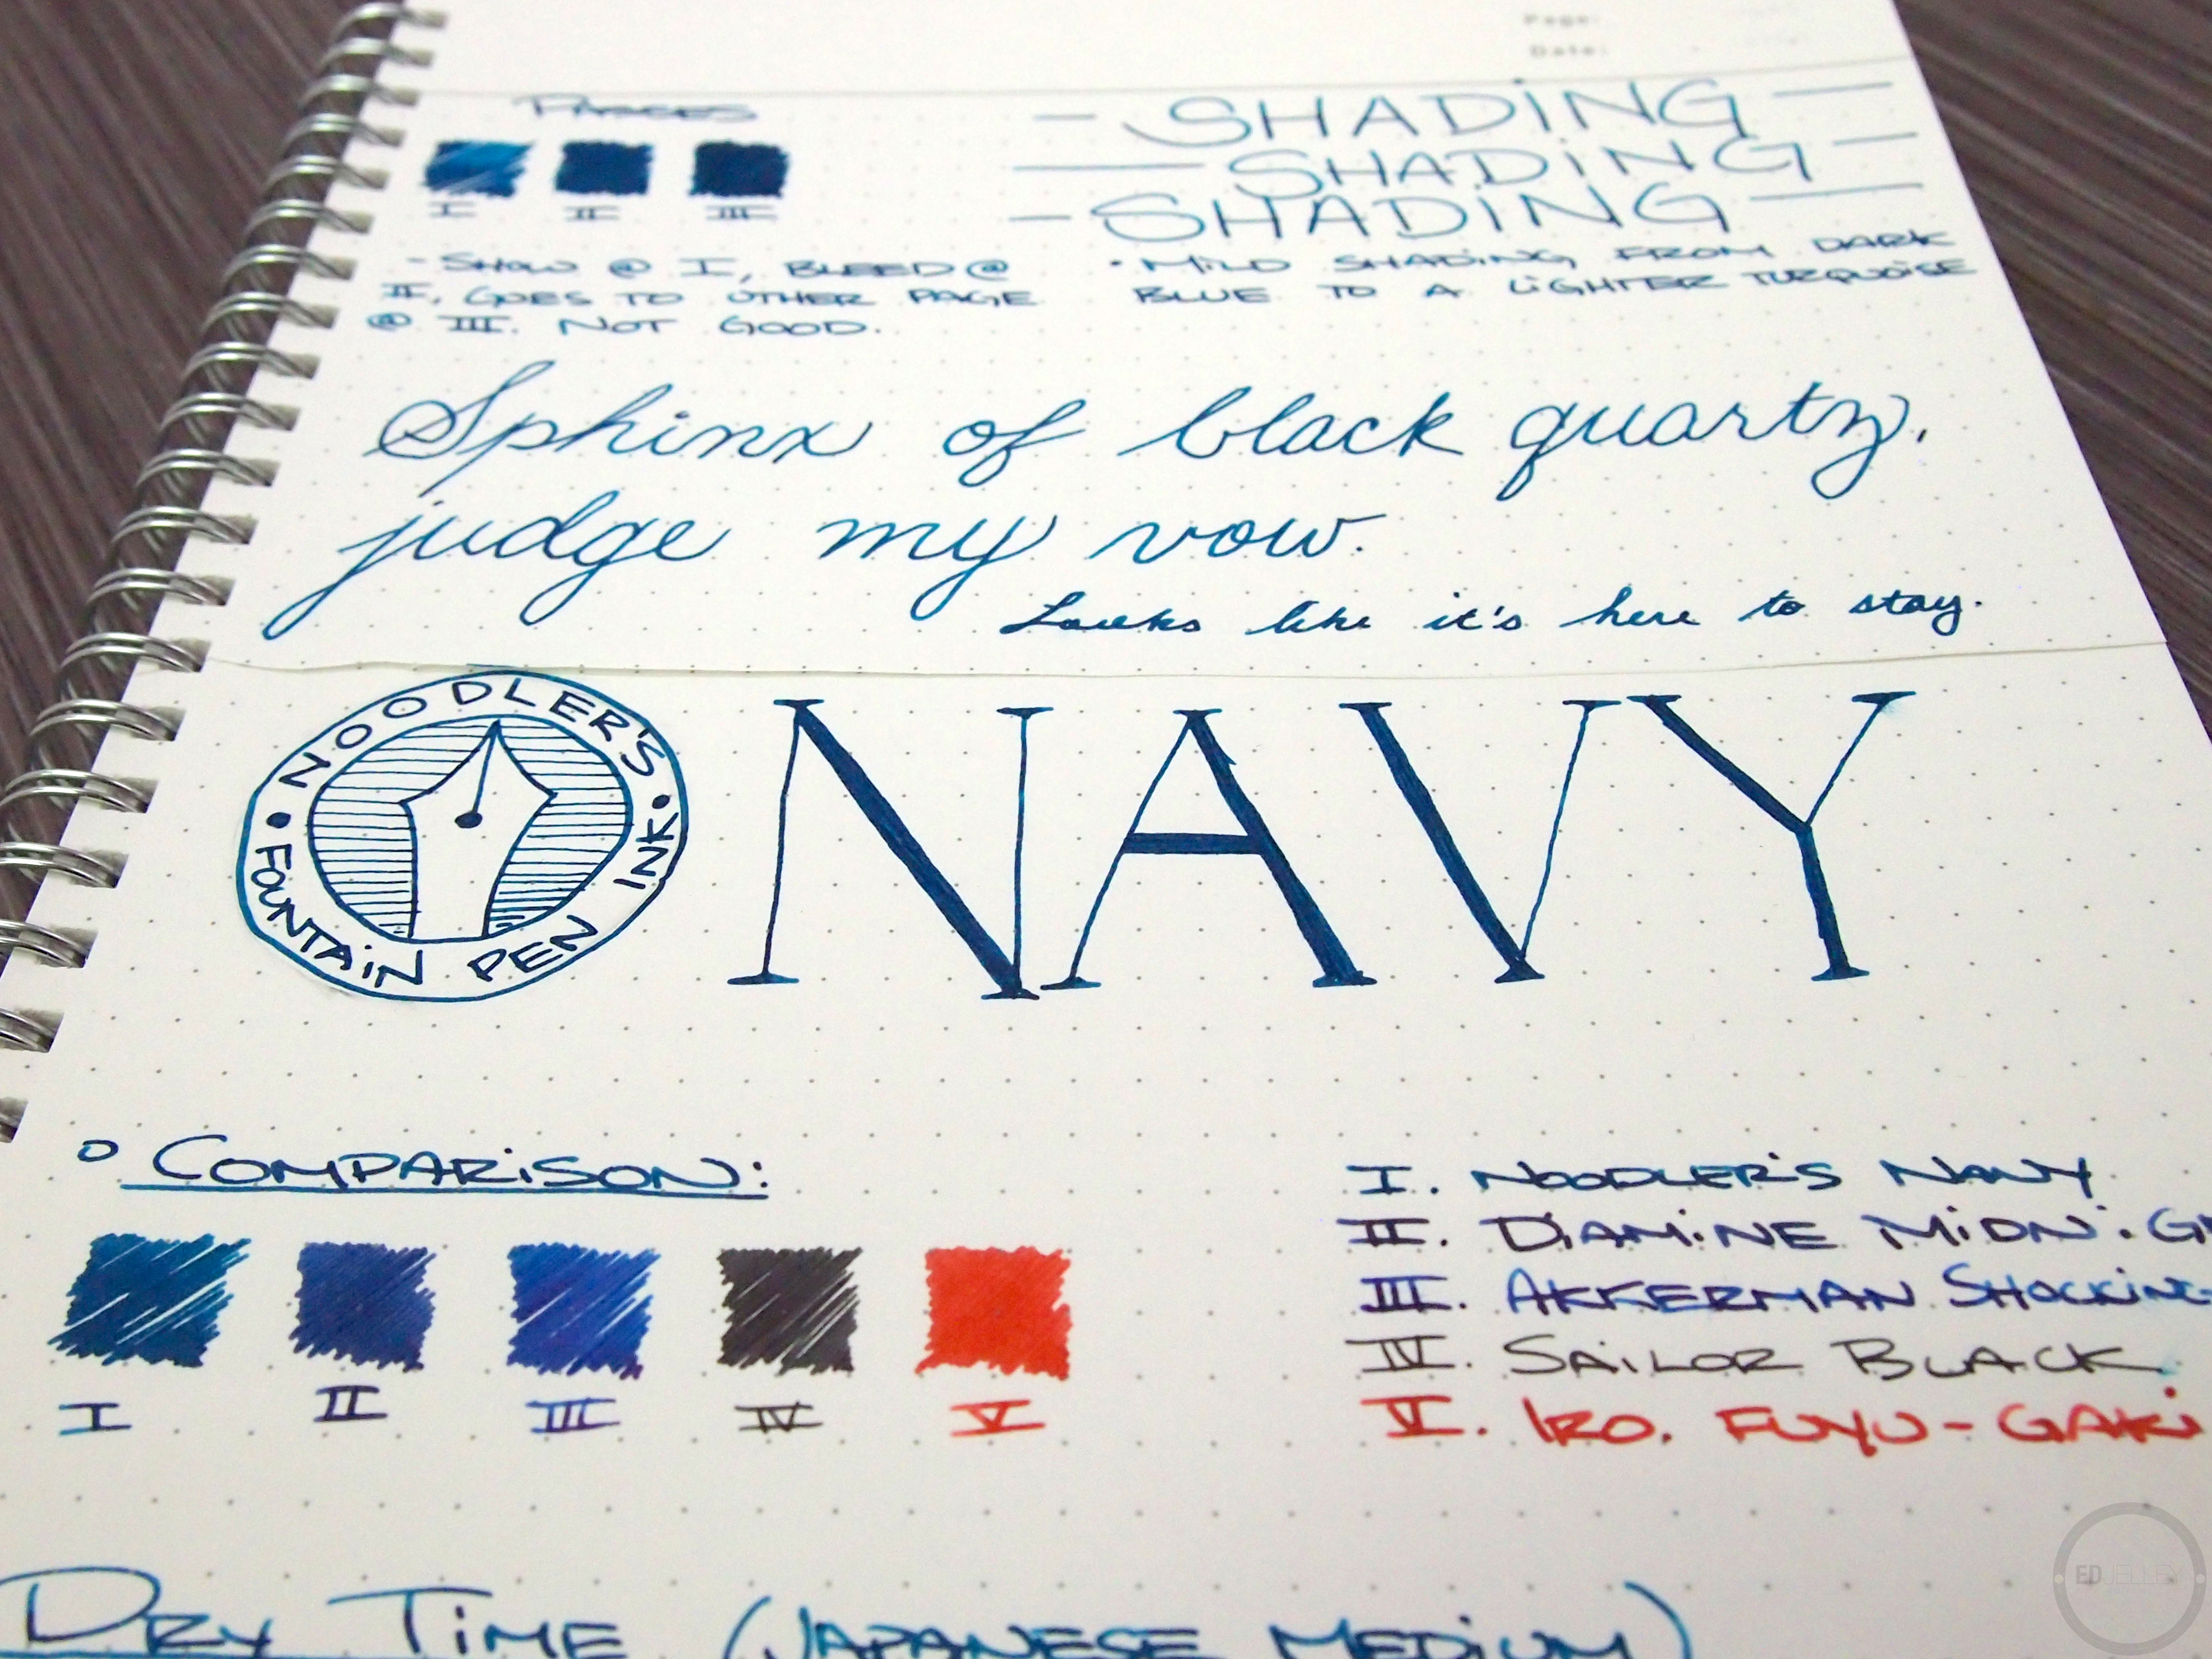 Page:
Date:
PASSES
I II III
- SHOW @ I, BLEED @
II, GOES TO OTHER PAGE
@ III. NOT GOOD.
— SHADING —
— SHADING —
— SHADING —
• MILD SHADING FROM DARK
BLUE TO A LIGHTER TURQUOISE
Sphinx of black quartz,
judge my vow.
Looks like it's here to stay.
• NOODLER'S •
FOUNTAIN PEN INK
NAVY
° COMPARISON:
I II III IV V
I. NOODLER'S NAVY
II. DIAMINE MIDNIGH
III. AKKERMAN SHOCKING
IV. SAILOR BLACK
V. IRO. FUYU-GAKI
DRY TIME (JAPANESE MEDIUM)
EDJELLEY